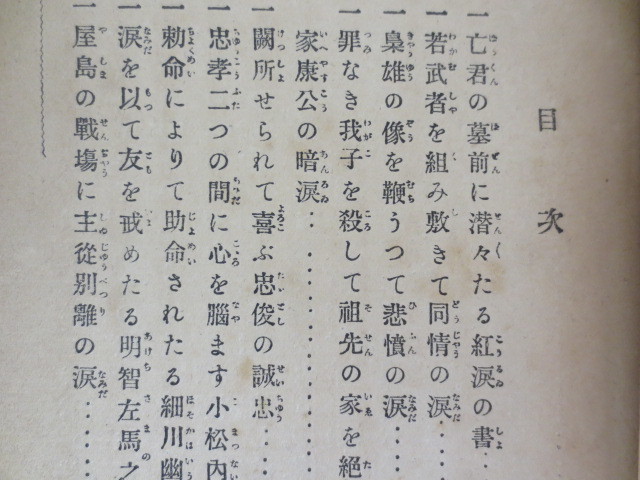 目次
一亡君の墓前に潜々たる紅涙の書‥
一若武者を組み敷きて同情の涙‥‥
一梟雄の像を鞭うつて悲憤の涙‥‥
一罪なき我子を殺して祖先の家を絶
家康公の暗涙‥‥‥‥‥‥
一闕所せられて喜ぶ忠俊の誠忠‥‥
一忠孝二つの間に心を腦ます小松內
一勅命によりて助命されたる細川幽
一淚を以て友を戒めたる明智左馬之
一屋島の戰場に主從別離の淚‥‥‥